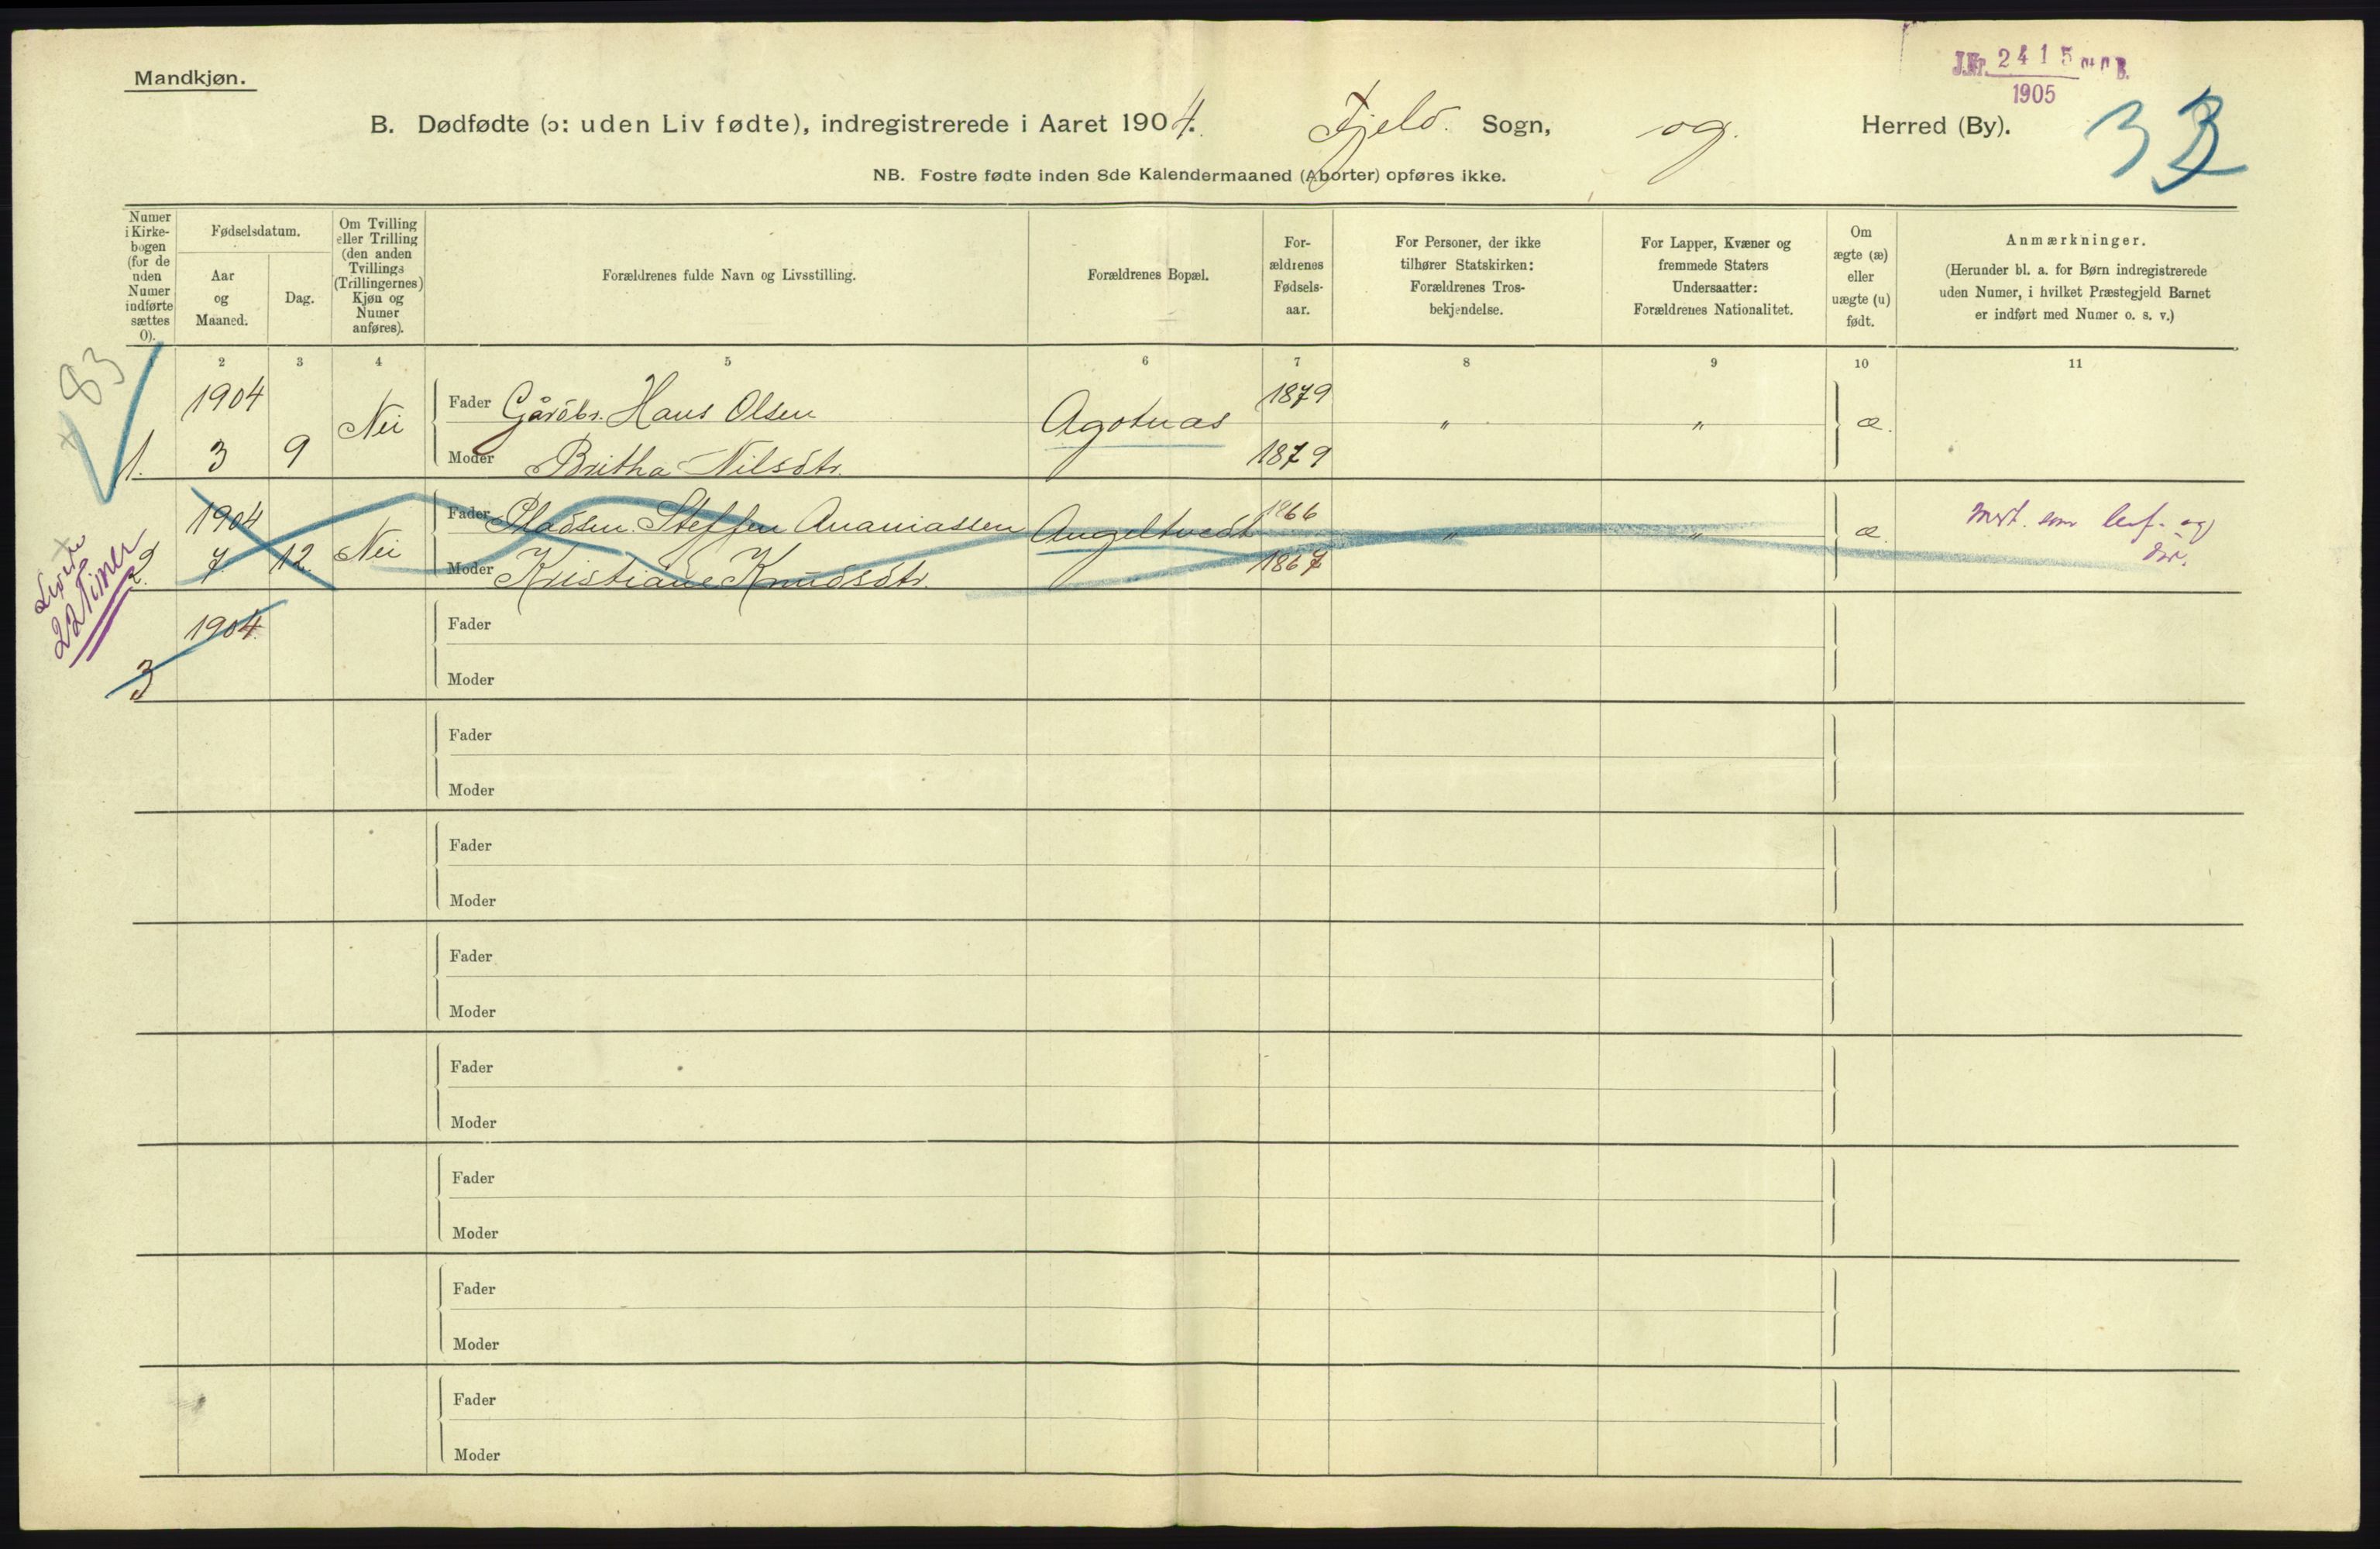 Mandkjøn.
J.Nr. 2415
1905
B. Dødfødte (ɔ: uden Liv fødte), indregistrerede i Aaret 1904. Fjeld. Sogn, og. Herred (By).
NB. Fostre fødte inden 8de Kalendermaaned (Aborter) opføres ikke.
Numer
i Kirke-
bogen
(for de
uden
Numer
indførte
sættes
0).
Fødselsdatum.
Aar
og
Maaned.
Dag.
Om Tvilling
eller Trilling
(den anden
Tvillings
(Trillingernes)
Kjøn og
Numer
anføres).
Forældrenes fulde Navn og Livsstilling.
Forældrenes Bopæl.
For-
ældrenes
Fødsels-
aar.
For Personer, der ikke
tilhører Statskirken:
Forældrenes Tros-
bekjendelse.
For Lapper, Kvæner og
fremmede Staters
Undersaatter:
Forældrenes Nationalitet.
Om
ægte (æ)
eller
uægte (u)
født.
Anmærkninger.
(Herunder bl. a. for Børn indregistrerede
uden Numer, i hvilket Præstegjeld Barnet
er indført med Numer o. s. v.)
1 2 3 4 5 6 7 8 9 10 11
83
1904 Nei Fader Gårdbr. Hans Olsen Agotnas 1879 " " æ.
1. 3 9 Moder Britha Nilsdtr. 1879
1904 Nei Fader Pladsm. Steffen Ananiassen Angeltvedt 1866 " " æ. som lef. og
2. 7 12 Moder Kristiane Knudsdtr. 1867 dør.
Levede
22 Timer
1904. Fader
3 Moder
Fader
Moder
Fader
Moder
Fader
Moder
Fader
Moder
Fader
Moder
Fader
Moder
Fader
Moder